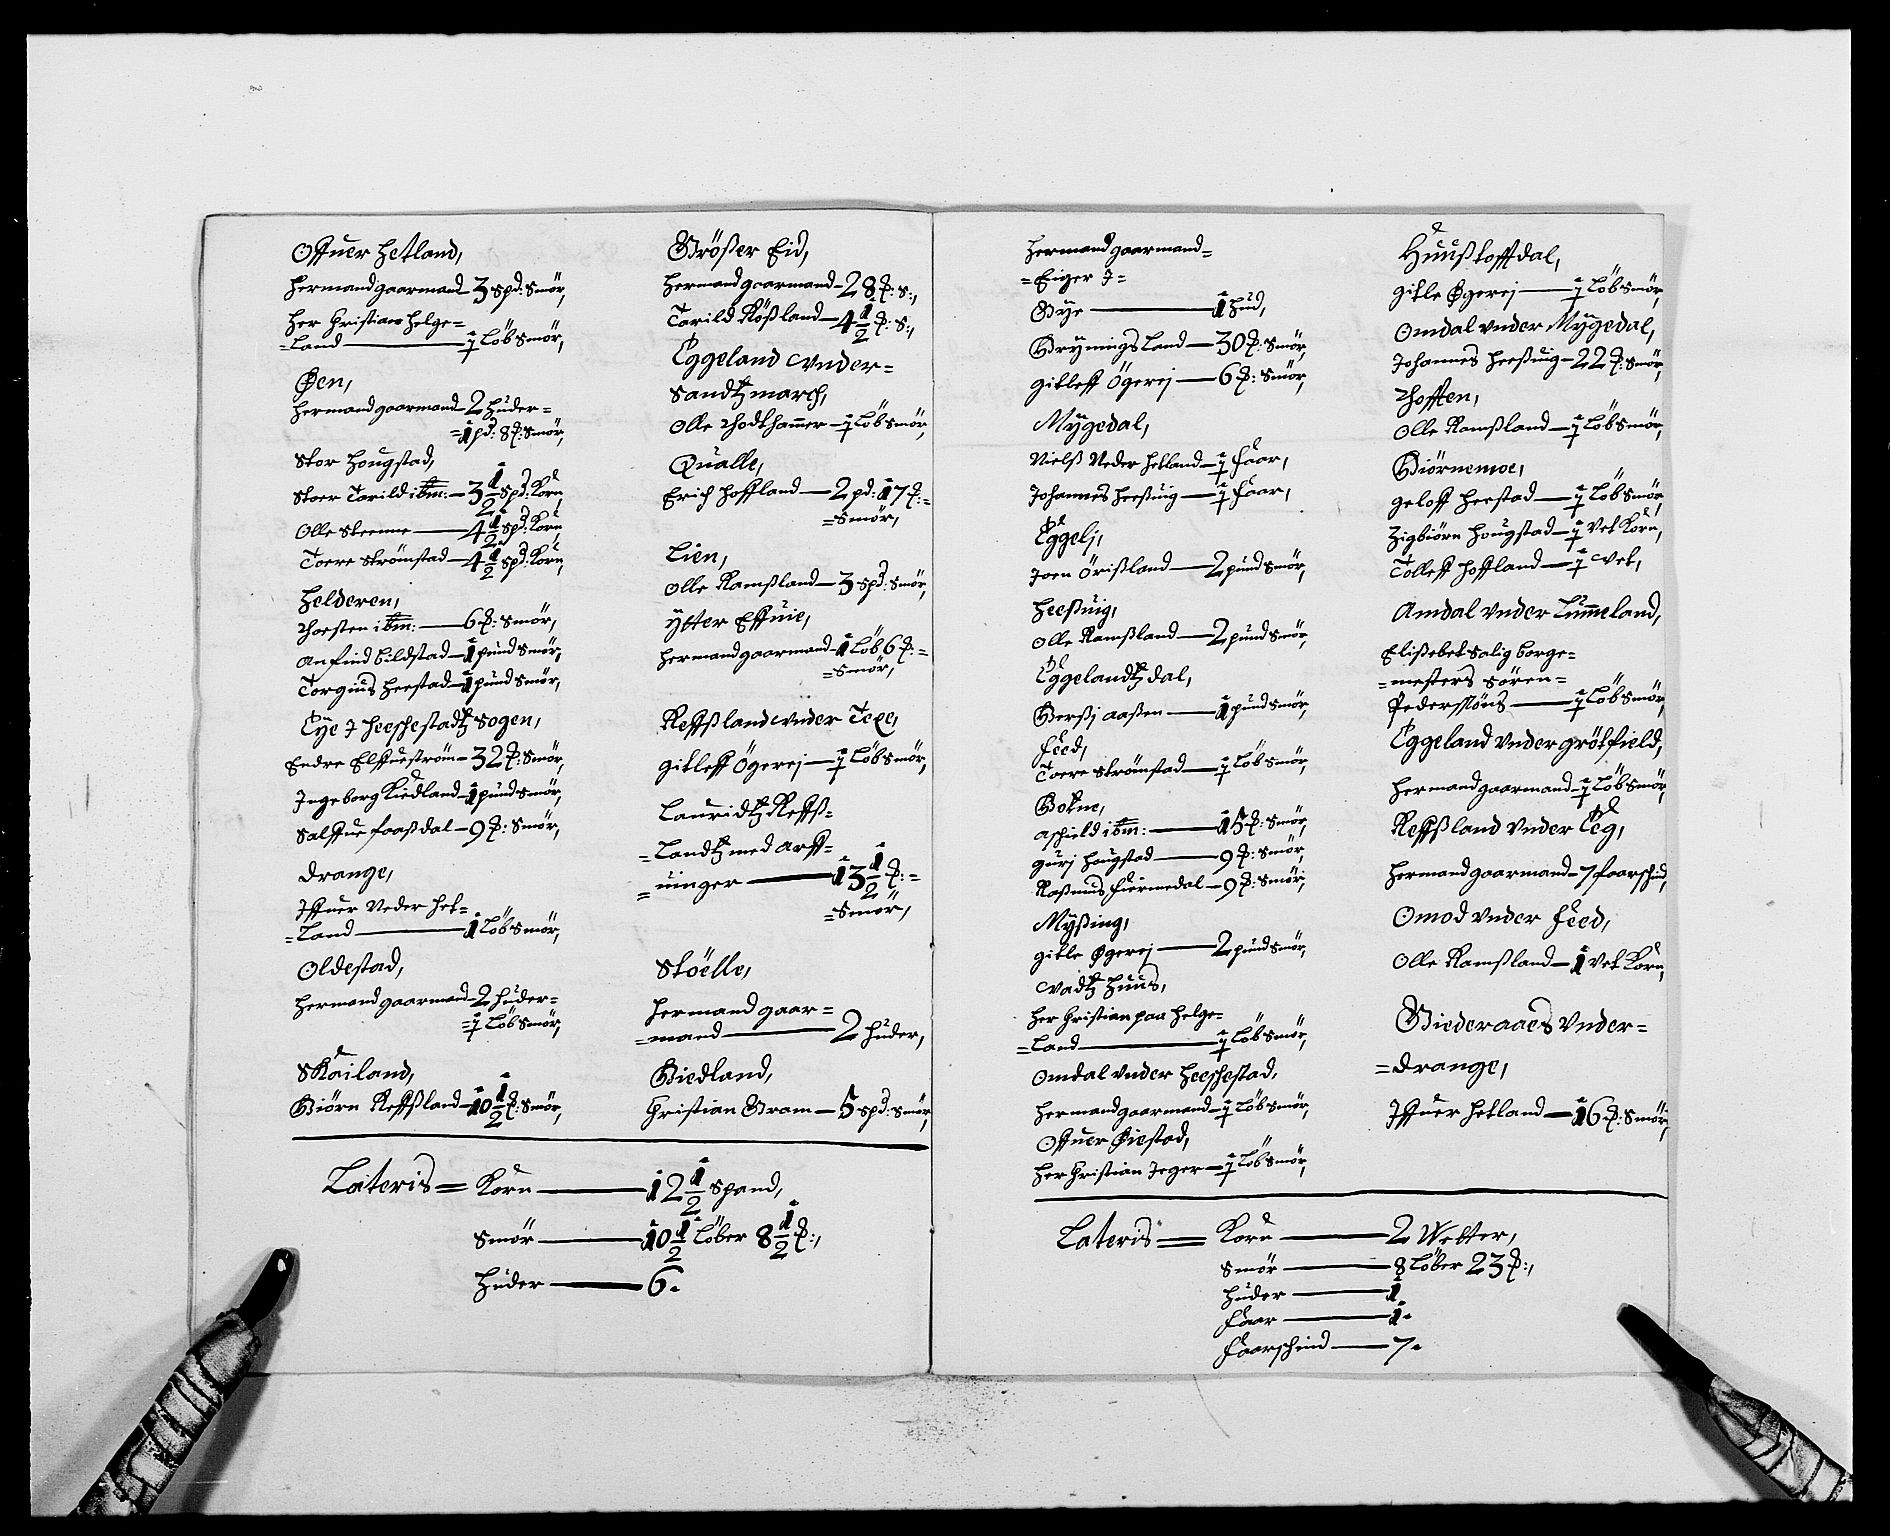 Offuer Hetland,
Hermand gaarmand 3 spd: Smör,
Her Christian Helge=
=Land ½ Löb Smör,
Øen,
Hermand gaarmand 2 Huder=
=1 pd: 8 ℔: Smör,
Stor Hougstad,
Stoer Tarild ibm: 3½ spd: Korn,
Olle Steenne 4½ spd: Korn,
Toere Strömstad 4½ spd: Korn,
Helderen,
Thorsten ibm: 6 ℔: Smör,
Anfind Bildstad 1 pund Smör,
Torgius Heestad 1 pund Smör,
Eye I Heeschestadtz Sogen,
Endre Elffueström 32 ℔: Smör,
Ingeborg Kiedland 1 pund Smör,
Salffue Faasdal 9 ℔: Smör,
Drange,
Iffuer Neder Het=
=Land 1 Löb Smör,
Oldestad,
Hermand gaarmand 2 Huder=
=½ Löb Smör,
Skailand,
Biörn Reffsland 10½ ℔: Smör,
Grösser Eid,
Hermand gaarmand 28 ℔: S:,
Tarild Rössland 4½ ℔: S:,
Eggeland vnder=
Sandtz march,
Olle Thodthammer ½ Löb Smör,
Qualle,
Erich Hoffland 2 pd: 17 ℔:=
=Smör,
Lien,
Olle Ramsland 3 spd: Smör,
Ytter Effuie,
Hermand gaarmand 1 Löb 6 ℔:=
=Smör,
Reffsland vnder Texe,
Gitleff Ögerej ½ Löb Smör,
Lauridtz Reffs=
=Landtz med arff=
=uinger 13½ ℔:=
=Smör,
Stöelle,
Hermand gaar=
=mand 2 Huder,
Giedland,
Christian Gram 5 spd: Smör,
Lateris= Korn 12½ Spand,
Smör 10½ Löber 8½ ℔:,
Huder 6.
Hermand gaarmand=
=Eiger I=
Bye 1 Hud,
Grynings Land 30 ℔: Smör,
Gitleff Ögerej 6 ℔: Smör,
Mygedal,
Niels Neder Hetland ½ Faar,
Johannes Heesuig ½ Faar,
Eggelj,
Joen Örisland 2 pund Smör,
Heesuig,
Olle Ramsland 2 pund Smör,
Eggelandtz dal,
Bersj aasen 1 pund Smör,
Feed,
Toere Strömstad ½ Löb Smör,
Botne,
Aschield ibm: 15 ℔: Smör,
Gurj Hougstad 9 ℔: Smör,
Rasmus Fiermedal 9 ℔: Smör,
Myssing,
Gitle Øgerej 2 pund Smör,
Vadtz Huus,
Her Christian paa Helge=
=Land ½ Löb Smör,
Omdal vnder Heeschestad,
Hermand gaarmand ½ Löb Smör,
Offuer Øiestad,
Her Christian Jeger ½ Löb Smör,
Huusstoffdal,
Gitle Øgerej ½ Löb Smör,
Omdal vnder Mygedal,
Johannes Heesuig 22 ℔: Smör,
Thofften,
Olle Ramsland ½ Löb Smör,
Biörnemoe,
Geloff Heestad ½ Löb Smör,
Zigbiörn Hougstad ½ Vet Korn,
Tolleff Hoffland ½ Vet,
Amdal vnder Lummeland,
Elisebet Salig borge=
=mesters Sören=
Pederssöns ½ Löb Smör,
Eggeland vnder grötfield,
Hermand gaarmand ½ Löb Smör,
Reffsland vnder Eeg,
Hermand gaarmand 7 faarschind,
Omod vnder Feed,
Olle Ramsland 1 Vet Korn,
Giederaaes vnder=
=Drange,
Iffuer Hetland 16 ℔: Smör,
Lateris= Korn 2 Wetter,
Smör 8 Löber 23 ℔:,
Huder 1
Faar 1.
Faarschind 7.